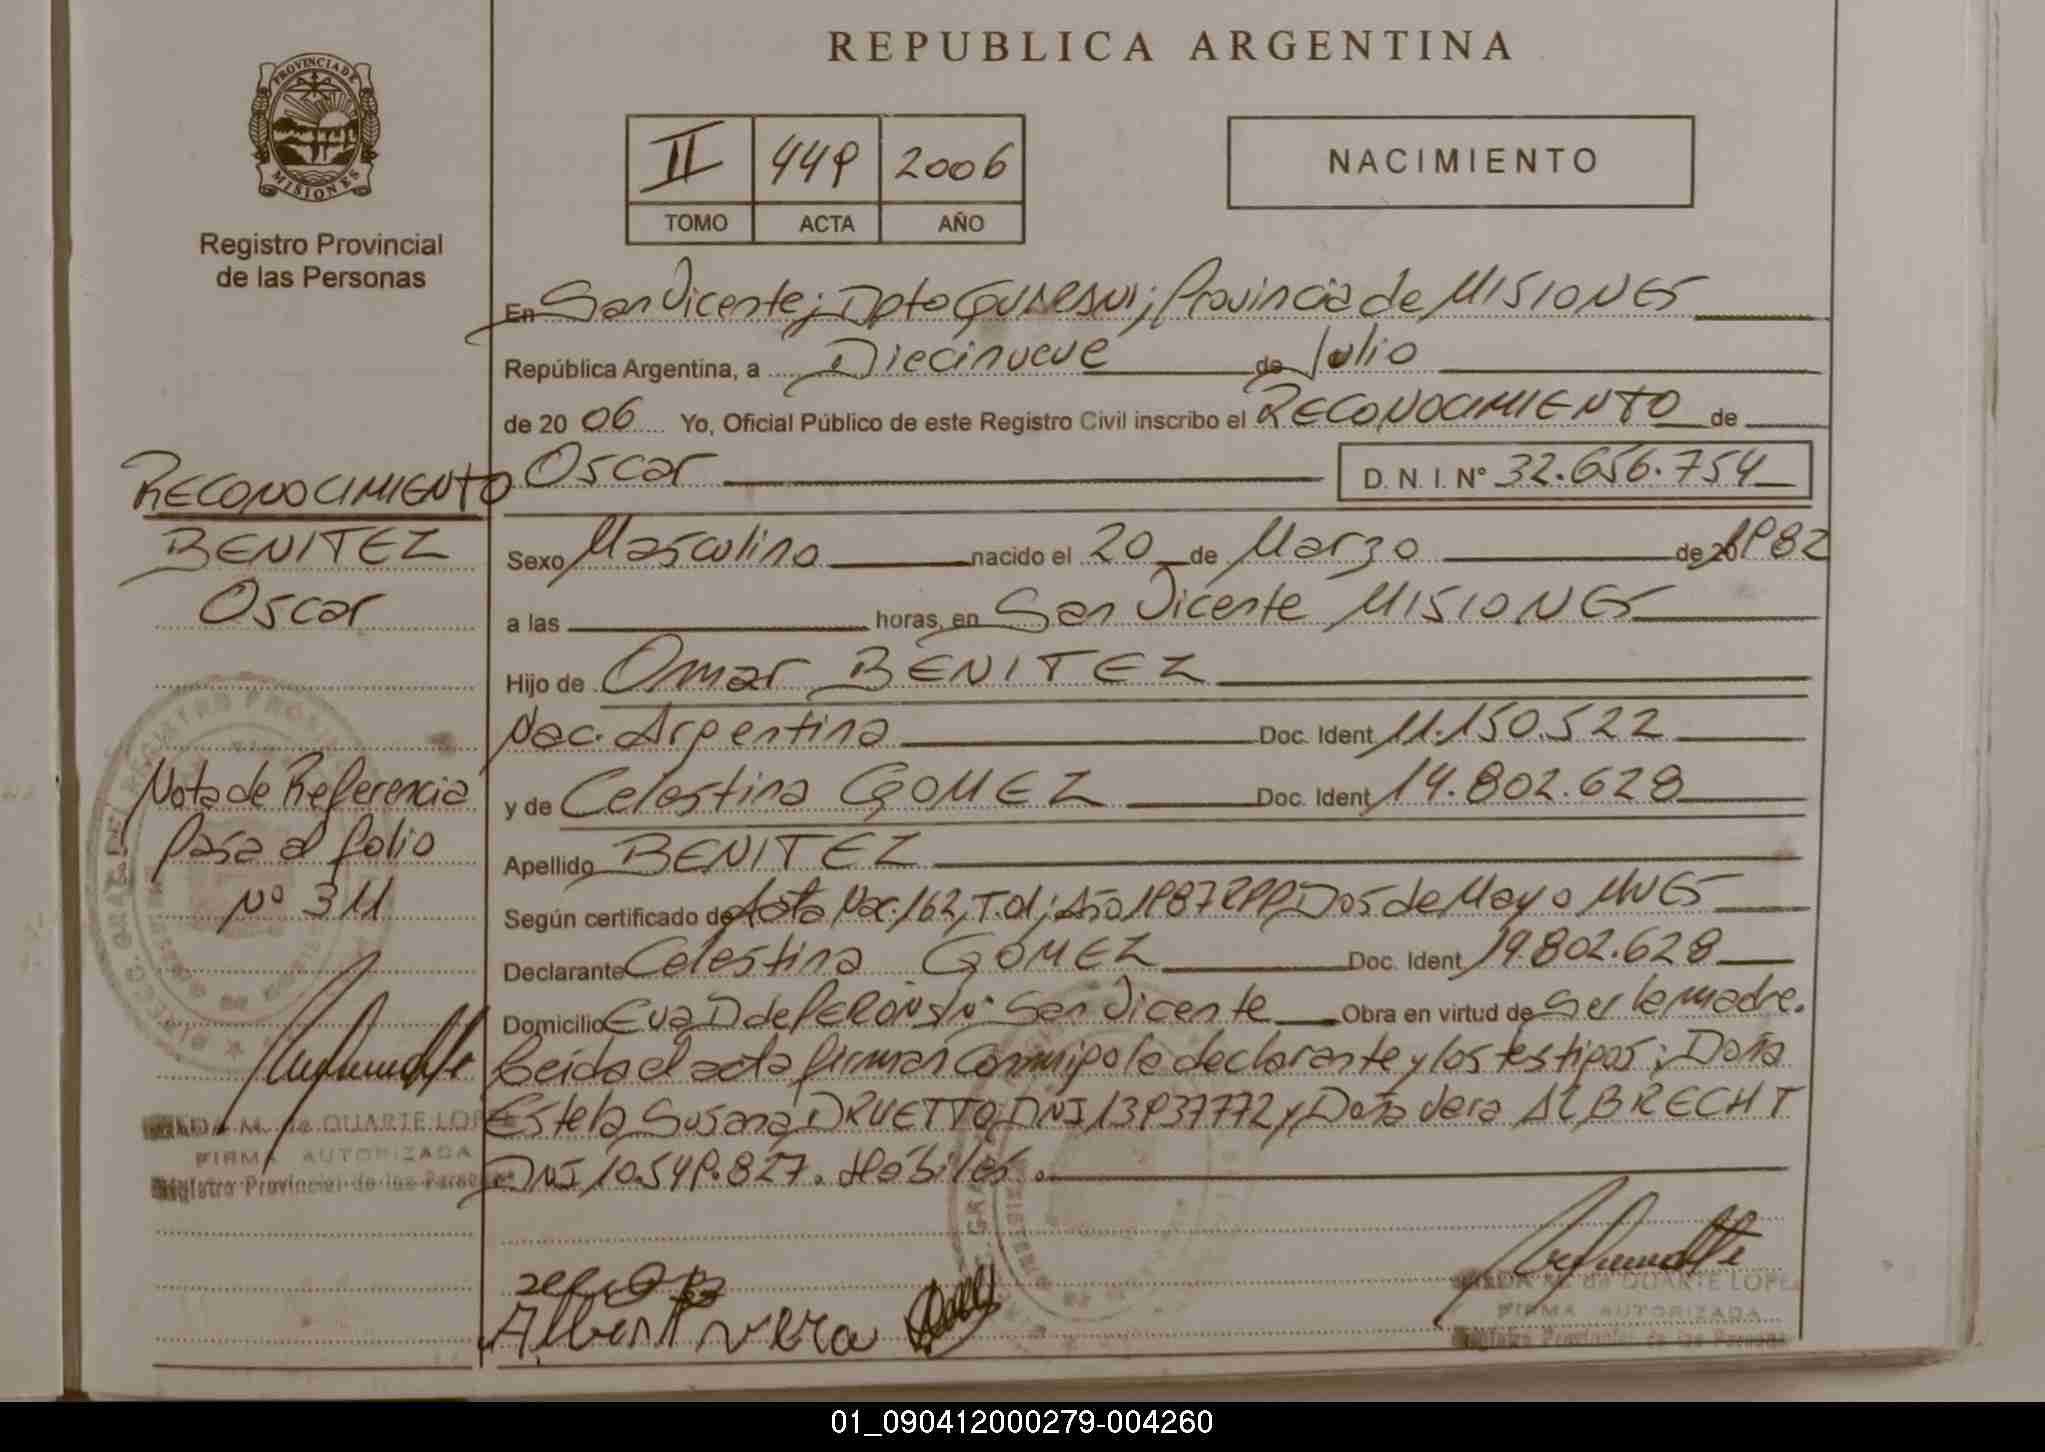 PROVINCIA DE
MISIONES
Registro Provincial
de las Personas
REPUBLICA ARGENTINA
II 449 2006
TOMO ACTA AÑO
NACIMIENTO
En San Vicente; Dpto GUARANI; Provincia de MISIONES
República Argentina, a Diecinueve de Julio
de 2006 Yo, Oficial Público de este Registro Civil inscribo el RECONOCIMIENTO de
Oscar D. N. I. Nº 32.656.754
Sexo Masculino nacido el 20 de Marzo de 20 1982
a las horas, en San Vicente MISIONES
Hijo de Omar BENITEZ
Nac. Argentina Doc. Ident 11.150.522
y de Celestina GOMEZ Doc. Ident 19.802.628
Apellido BENITEZ
Según certificado de Acta Nac. 162, T.d1; Año 1987 RPP Dos de Mayo MNES
Declarante Celestina GOMEZ Doc. Ident 19.802.628
Domicilio Eva D de PERON S/Nº San Vicente Obra en virtud de Ser la madre.
Leida el acta firman conmigo la declarante y los testigos; Doña
Estela Susana DRUETTO DNI 13937772 y Doña Vera ALBRECHT
DNI 10.549.827. Habiles.
RECONOCIMIENTO
BENITEZ
Oscar
Nota de Referencia
Pasa al folio
Nº 311
M. de DUARTE LOPE
FIRMA AUTORIZADA
Registro Provincial de las Personas
Albert vera
M. de DUARTE LOPE
FIRMA AUTORIZADA
Registro Provincial de las Personas
01_090412000279-004260